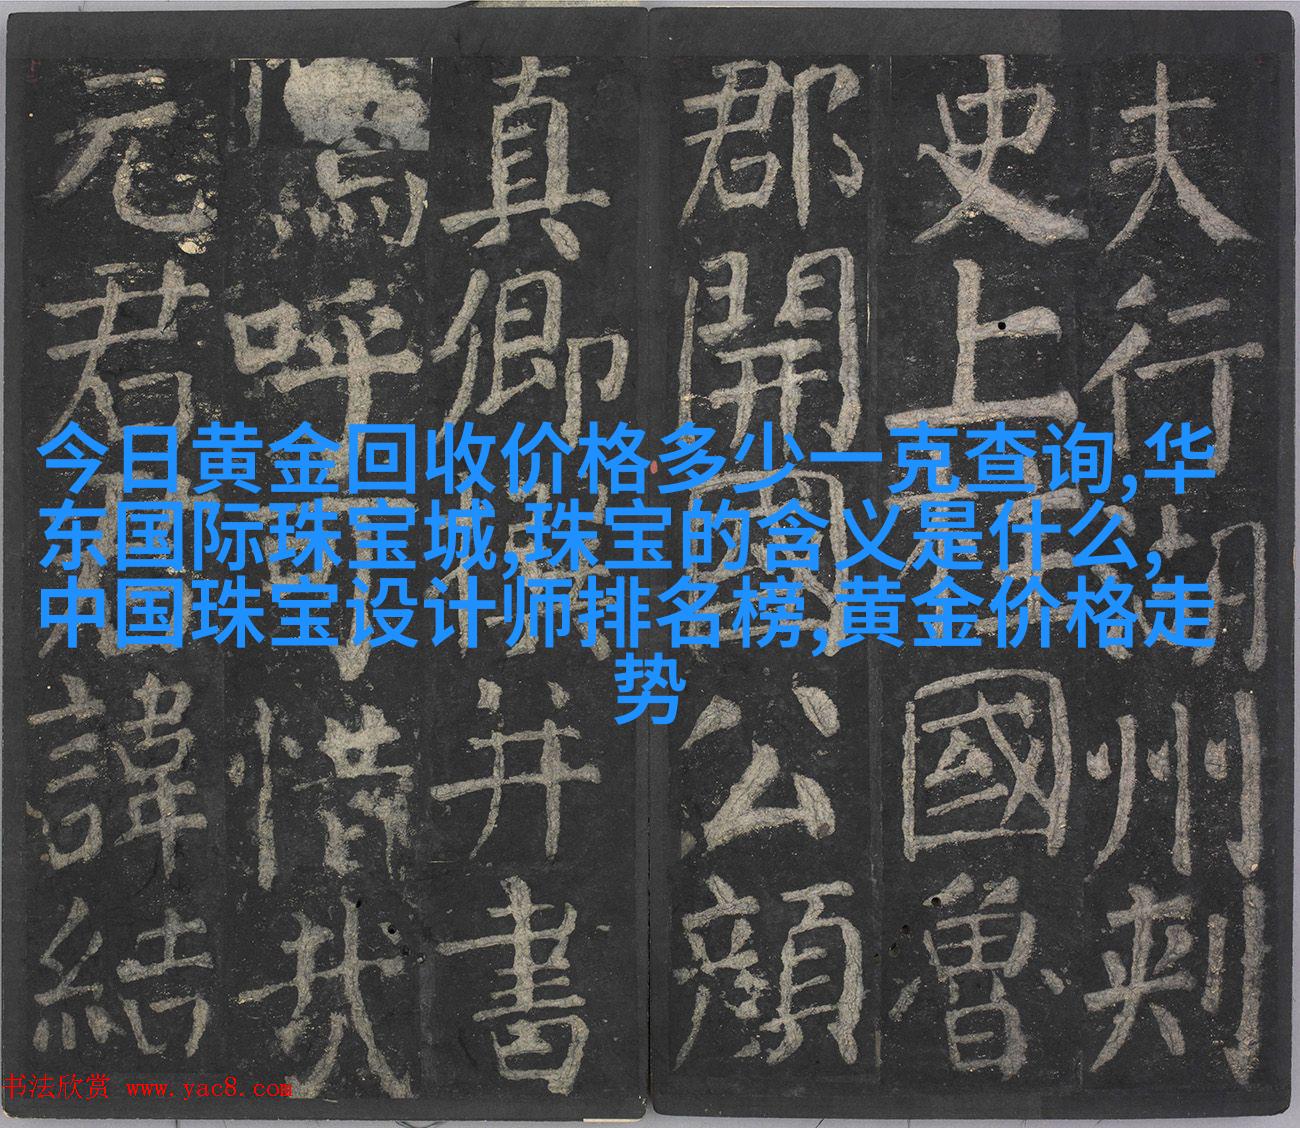 今日黄金回收价格多少一克查询,华
东国际珠宝城,珠宝的含义是什么,
中国珠宝设计师排名榜,黄金价格走
势
夫行湖州刺
史上國魯
郡開國公顏
真卿并書
嗚呼惜哉
元君諱結
书法欣赏 www.yac8.com